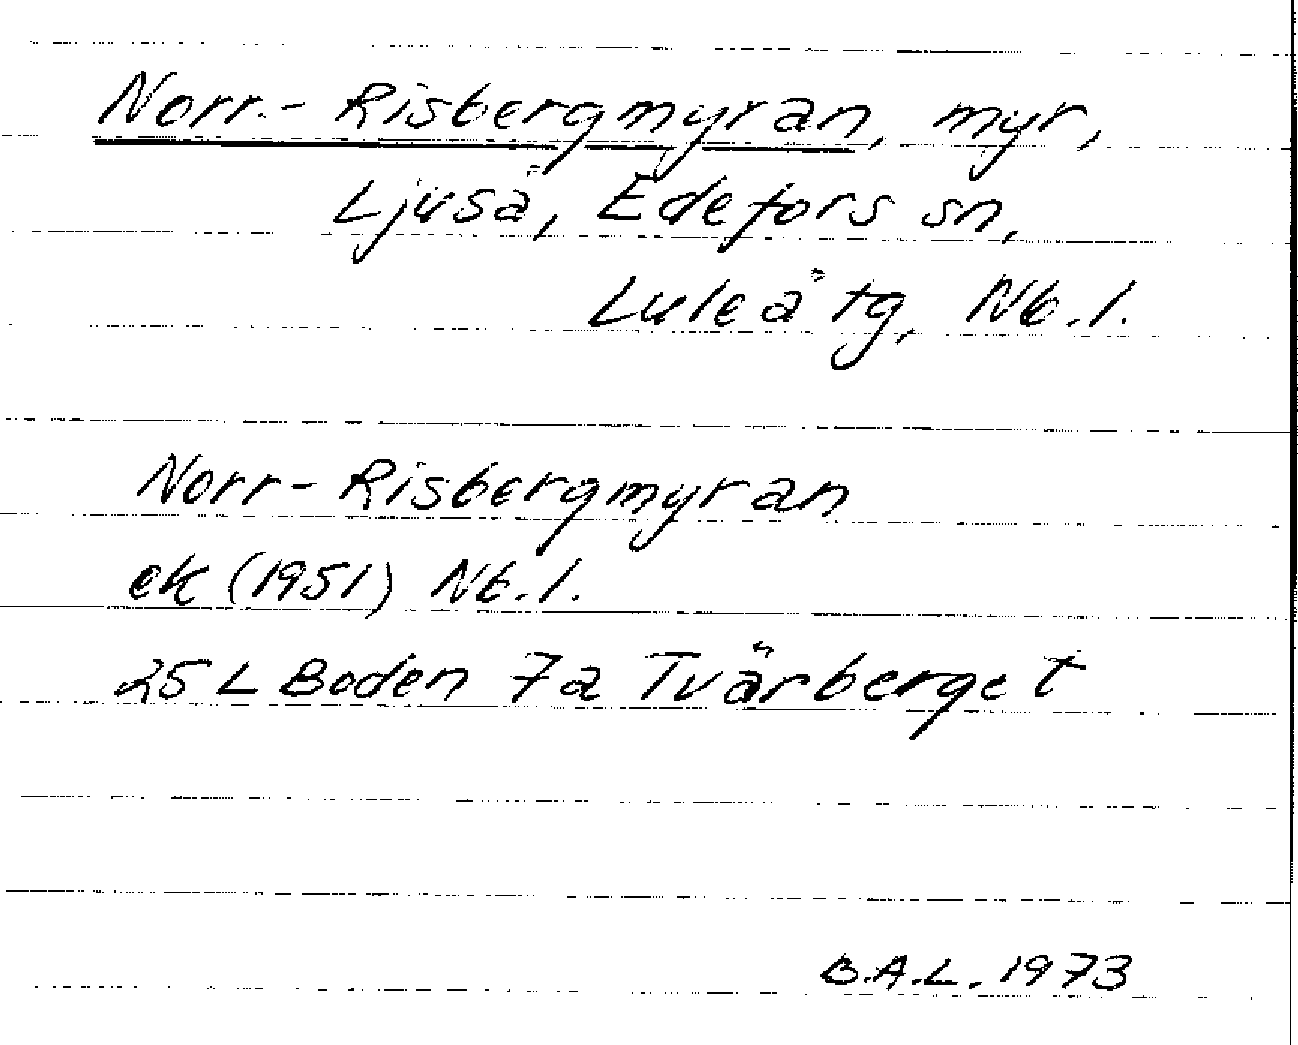 Norr.- Risbergmyran, myr,
Ljuså, Edefors sn,
Luleå tg, Nb.l.
Norr- Risbergmyran
ek (1951) Nb.l.
25 L Boden 7a Tvärberget
B.A.L. 1973